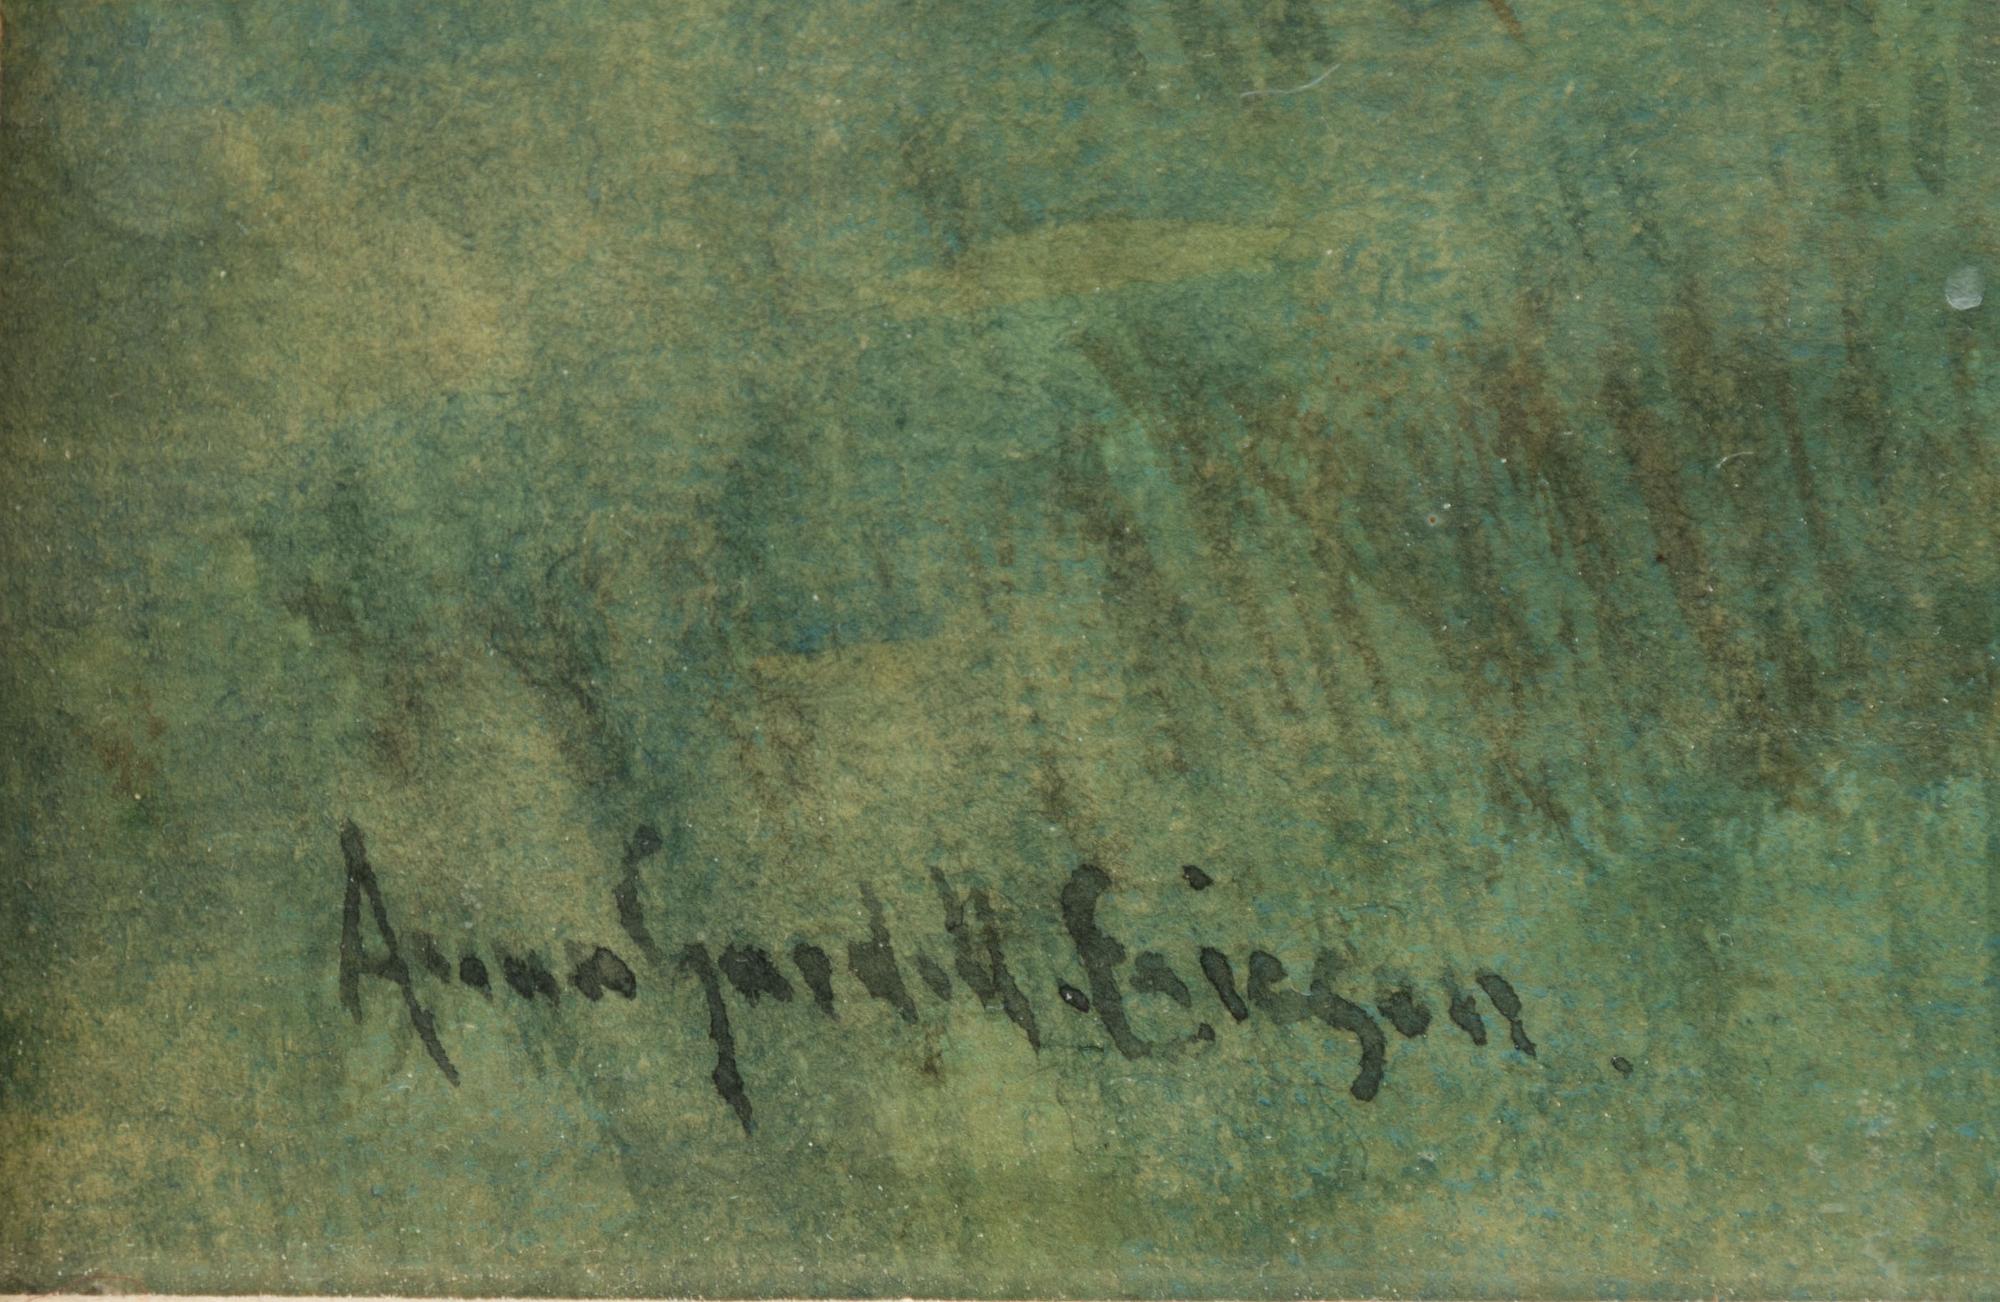 Anna Gardell. Ericson.